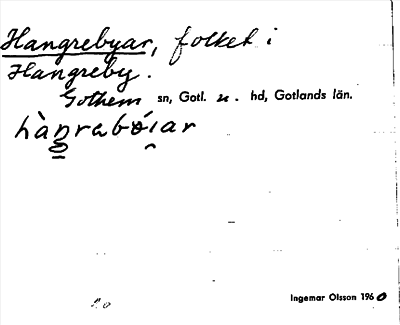 Hangrebyar, folket i
Hangreby.
Gothem sn, Gotl. n. hd, Gotlands län.
hàŋrabóıar
Ingemar Olsson 1960